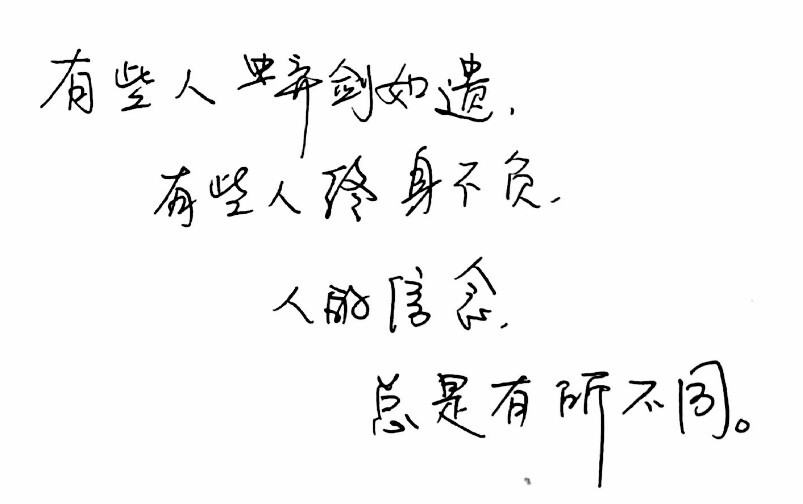 有些人弃剑如遗，
有些人终身不负，
人的信念，
总是有所不同。